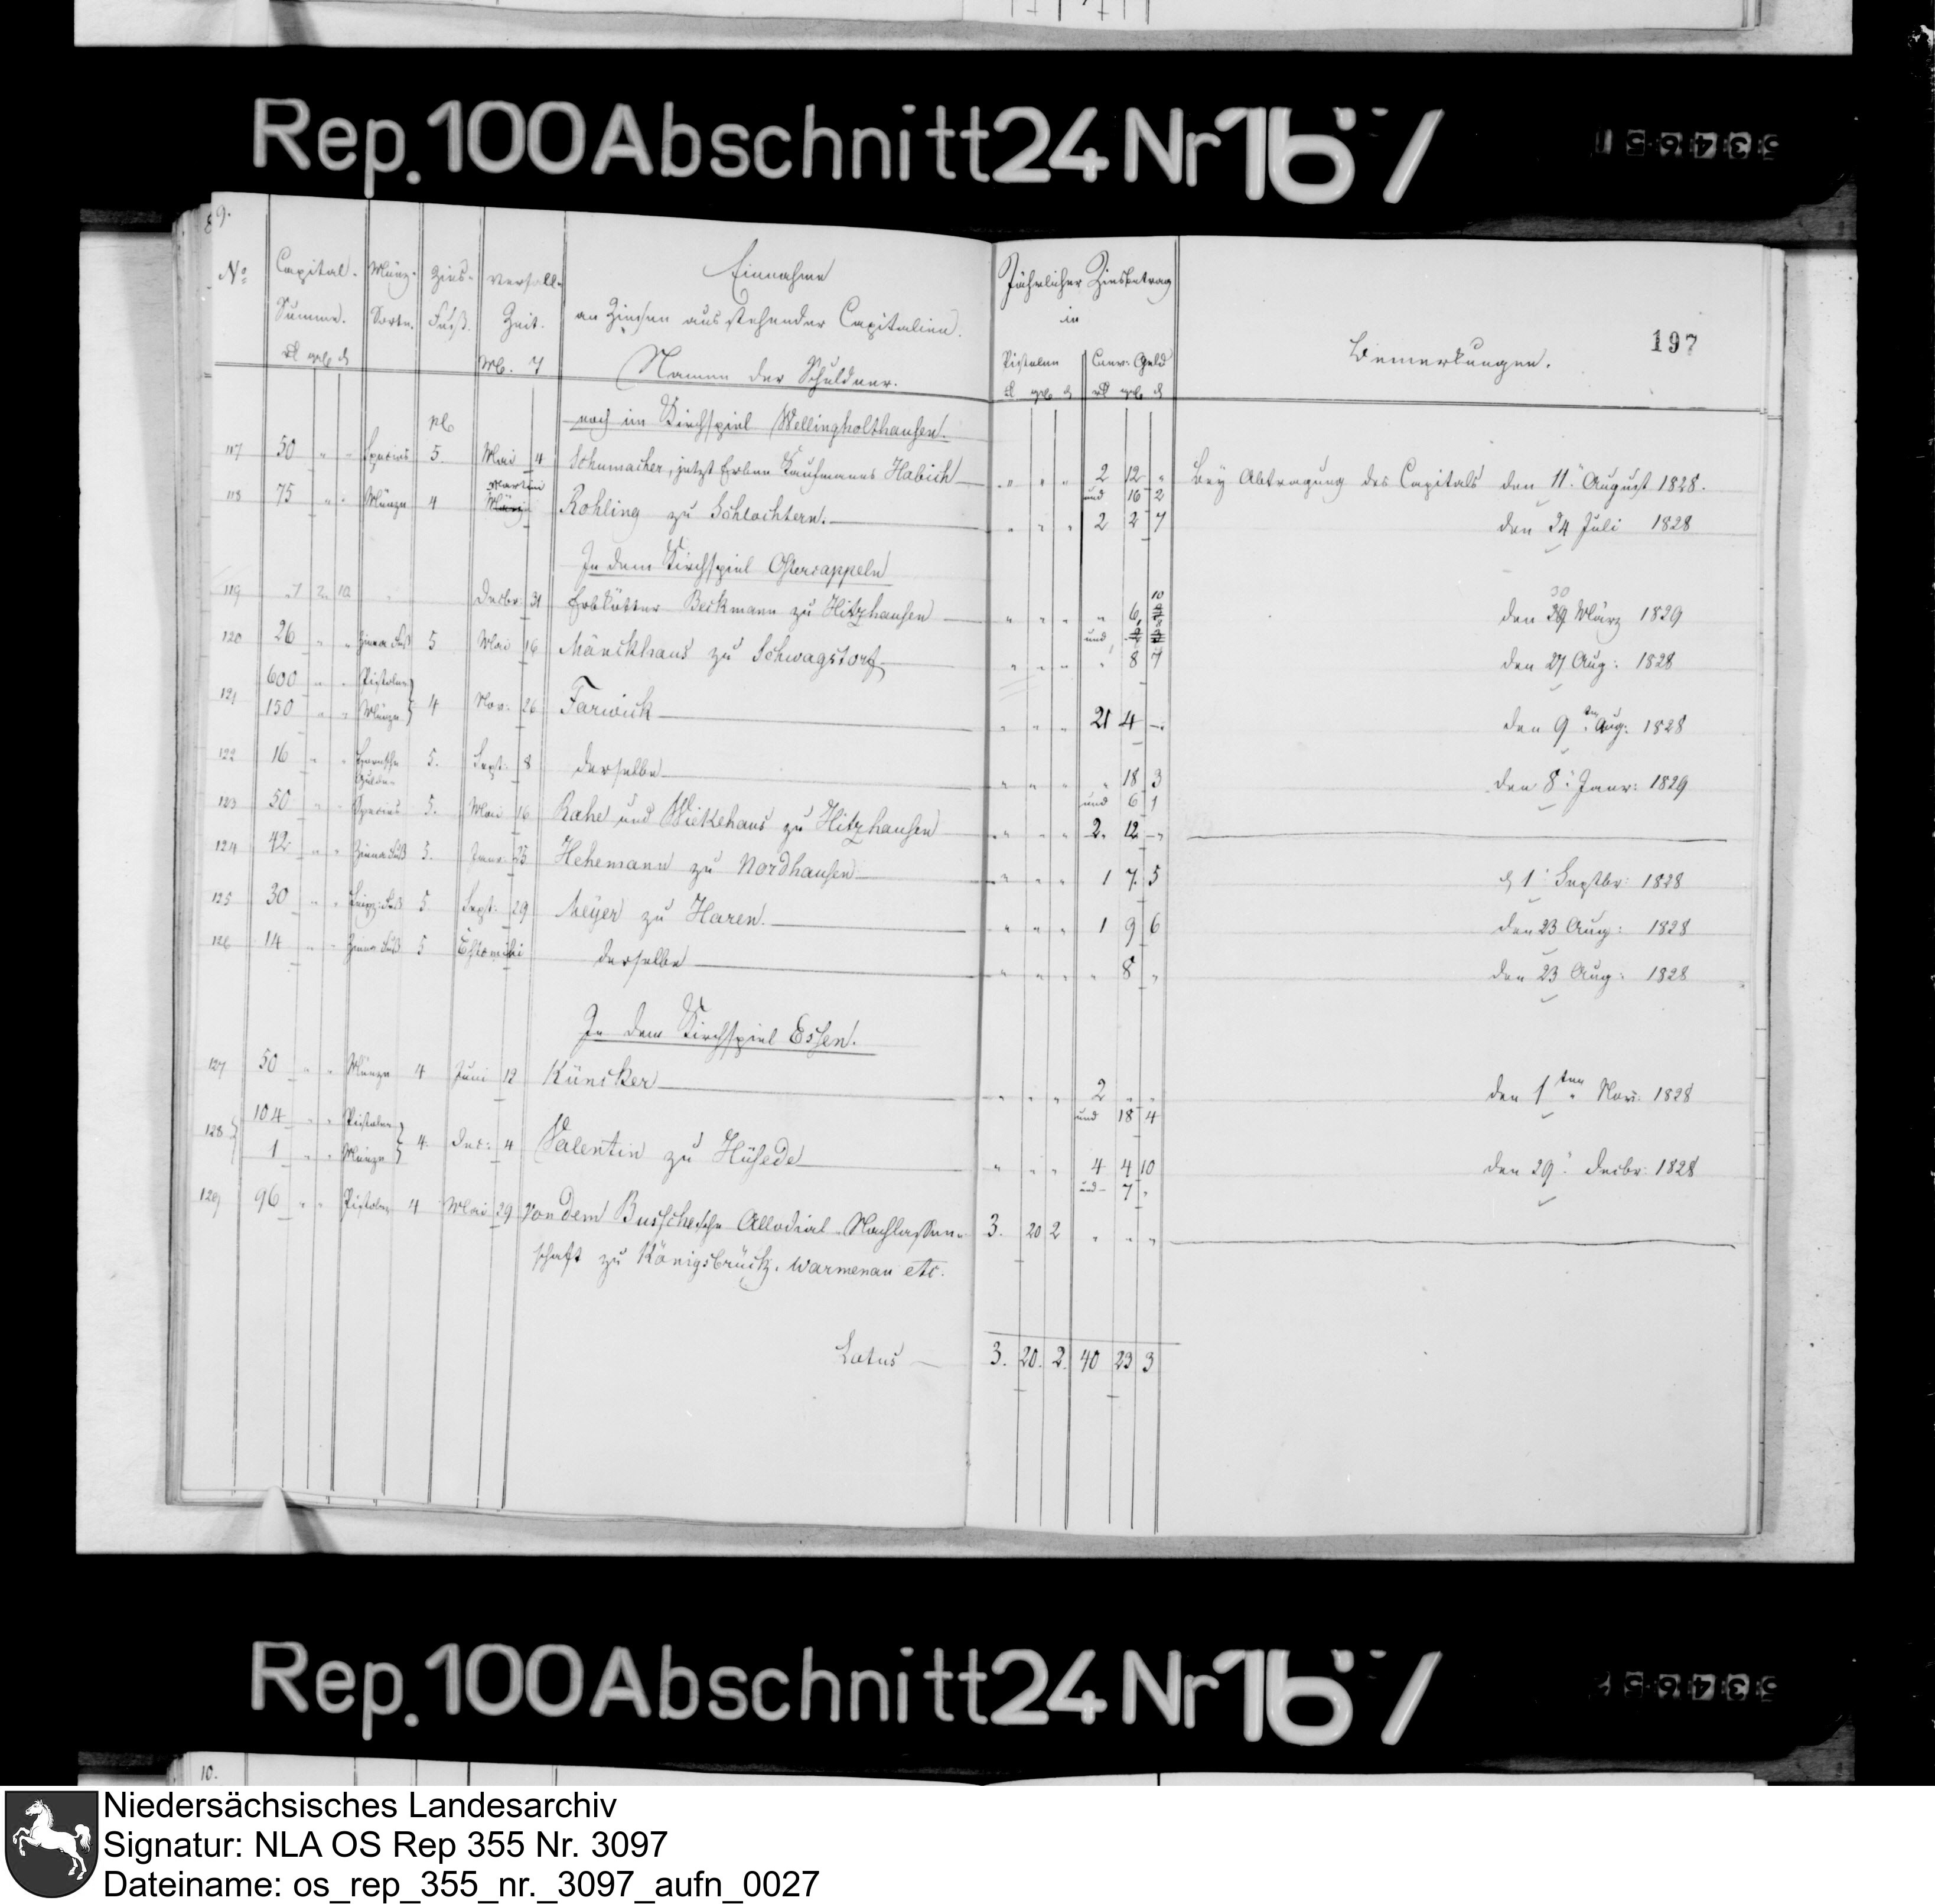 Rep. 100 Abschnitt 24 Nr 167
53465
9.
197
No Capital- Münz- Zins- Verfall- Einnahme Jährlicher Zinsbetrag
Summe. Sorte. Fuß. Zeit. an Zinsen aus stehender Capitalien. in
M. T. Namen der Schuldner. Pistolen Conv: Geld Bemerkungen.
noch im Kirchspiel Wellingholthausen.
117 50 " " Species 5. Mai 4 Schumacher, jetzt Erben Kaufmanns Habich " " " 2 12 " Bey Abtragung des Capitals den 11. August 1828.
und 16 2
118 75 " " Münze 4 Martini Rohling zu Schlochtern. " " " 2 2 7 den 24 Juli 1828
In dem Kirchspiel Ostercappeln
119 " 7 2 10 " Decbr: 31 Erbkötter Beckmann zu Hitzhausen " " " " 6 10 den 30 März 1829
und
120 26 " " Zinna Fuß 5 Mai 16 Mönckhaus zu Schwagstorf " " " " 8 7 den 27 Aug: 1828
600 " " Pistolen
121 150 " " Münze 4 Nov: 26 Farwick " " " 21 4 -. den 9ten Aug: 1828
122 16 " " Gulden 5. Sept: 8 derselbe " " " " 18 3 den 8. Janr: 1829
und 6 1
123 50 " " Species 5. Mai 16 Rahe und Wiekehaus zu Hitzhausen " " " 2. 12 -"
124 42 " " Zinna Fuß 5. Janr: 25 Hehemann zu Nordhausen " " " 1 7. 5 d 1. Septbr: 1828
125 30 " " Leipz: Fuß 5 Sept: 29 Meyer zu Haren. " " " 1 9 6 den 23 Aug: 1828
126 14 " " Zinna Fuß 5 Estomihi derselbe " " " " 8 " den 23 Aug: 1828
In dem Kirchspiel Essen.
127 50 " " Münze 4 Juni 12 Küncker " " " 2 " " den 1ten Nov: 1828
und 18 4
104 " " Pistolen
128 1 " " Münze 4 Dec: 4 Valentin zu Hüsede " " " 4 4 10 den 29. Decbr: 1828
und - 7 "
129 96 " " Pistolen 4 Mai 29 von dem Busschesche Allodial-Nachlassen- 3. 20 2 " " "
schaft zu Königsbrück, Warmenau etc.
Latus 3. 20. 2. 40 23 3
Rep. 100 Abschnitt 24 Nr 167
53465
10.
Niedersächsisches Landesarchiv
Signatur: NLA OS Rep 355 Nr. 3097
Dateiname: os_rep_355_nr._3097_aufn_0027